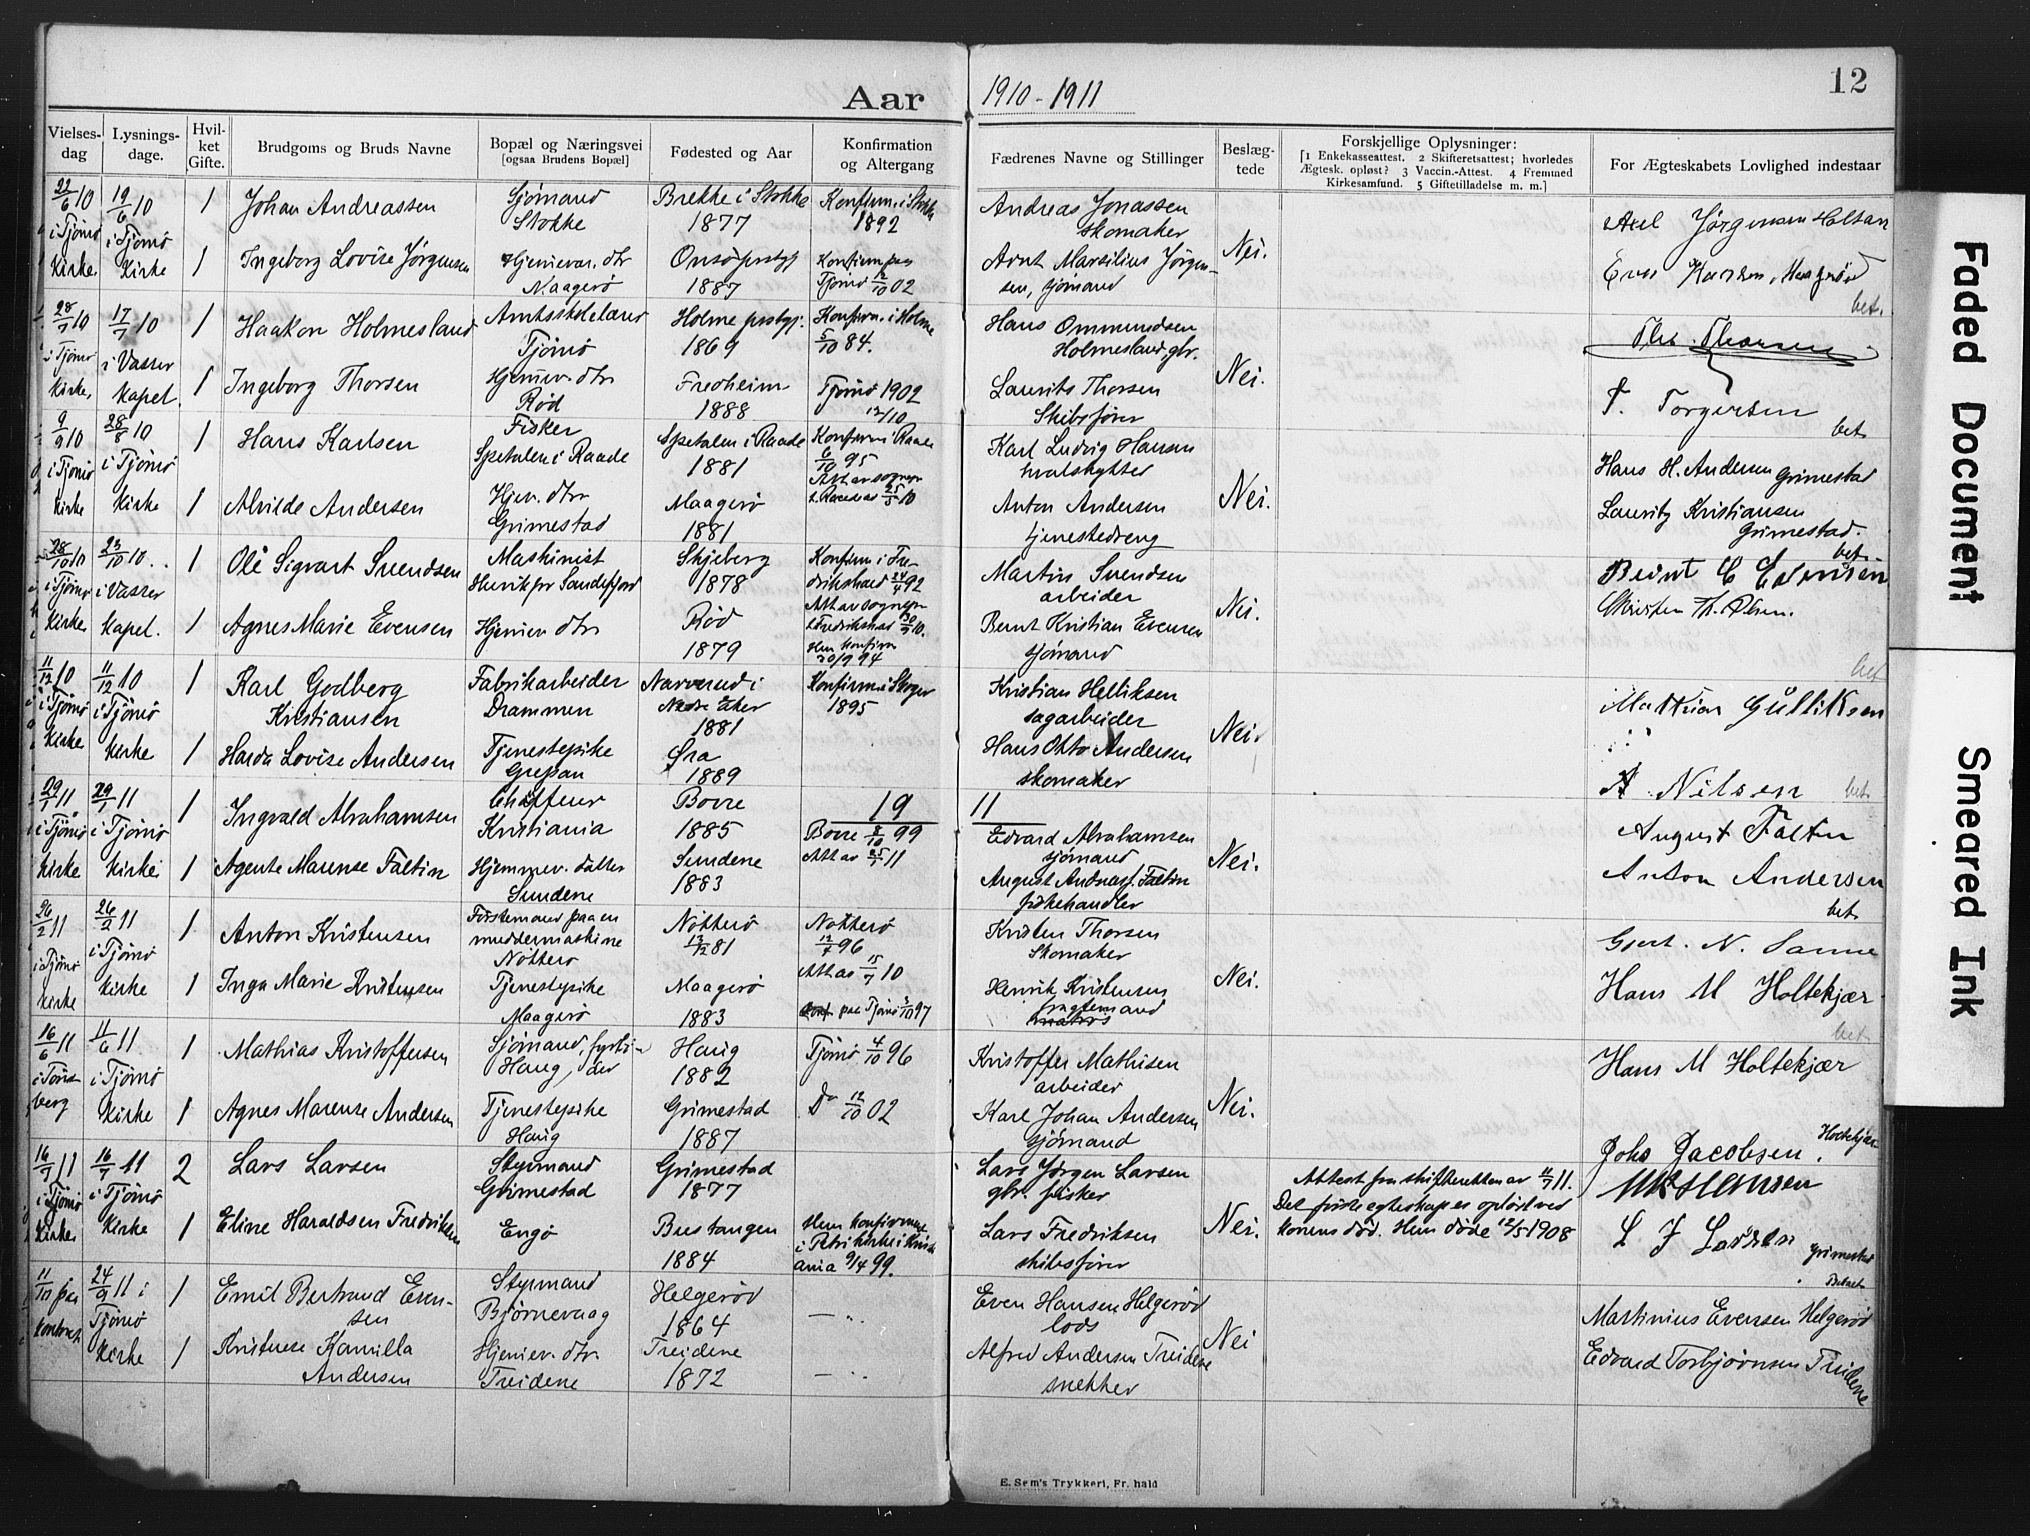 Aar 1910-1911
12
Vielses-dag
Lysnings-dage.
Hvil-ket Gifte.
Brudgoms og Bruds Navne
Bopæl og Næringsvei
[ogsaa Brudens Bopæl]
Fødested og Aar
Konfirmation og Altergang
Fædrenes Navne og Stillinger
Beslæg-tede
Forskjellige Oplysninger:
[1 Enkekasseattest. 2 Skifteretsattest; hvorledes
Ægtesk. opløst? 3 Vaccin.-Attest. 4 Fremmed
Kirkesamfund. 5 Giftetilladelse m. m.]
For Ægteskabets Lovlighed indestaar
22/6 10 i Tjømø Kirke.
19/6 10 i Tjømø Kirke
1 Johan Andreassen
Sjømand Stokke
Brekke i Stokke 1877
Konfirm. i Stokke 1892
Andreas Jonassen skomaker
Nei.
Axel Jørgensen Holtan
1 Ingeborg Lovise Jørgensen
Hjemmev. dtr Maagerø
Onsø prstgj 1887
Konfirm paa Tjømø 12/10 02
Arnt Marsilius Jørgensen, sjømand
bet.
28/7 10 i Tjømø Kirke.
17/7 10 i Vasser Kapel.
1 Haakon Holmesland
Amtsskolelærer Tjømø
Holme prstgj. 1869
Konfirm. i Holme 5/10 84.
Hans Ommundsen Holmesland, gbr.
Nei.
1 Ingeborg Thorsen
Hjemmev. dtr Rød
Fredheim 1888
Tjømø 1902 12/10
Laurits Thorsen Skibsfører
T. Torgersen
bet.
9/9 10 i Tjømø Kirke
28/8 10 i Tjømø Kirke
1 Hans Karlsen
Fisker Spetalen i Raade
Spetalen i Raade 1881
Konfirm i Raade 6/10 95
Karl Ludvig Hansen hvalskytter
Nei.
Hans H. Andersen Grimestad
1 Alvilde Andersen
Hjev. dtr Grimestad
Maagerø 1881
Anton Andersen tjenestedreng
Lauritz Kristiansen Grimestad.
bet.
28/10 10 i Tjømø Kirke
23/10 10 i Vasser Kapel.
1 Ole Sigvart Svendsen
Maskinist Hunikpr Sandefjord
Skjeberg 1878
Konfirm i Fredrikshald 24/4 92
Martin Svendsen arbeider
Nei.
Bernt E Evensen
1 Agnes Marie Evensen
Hjemmev. dtr
Rød 1879
Hun konfirm 20/9 94
Bernt Kristian Evensen sjømand
Kristen Th. Olsen.
bet
11/12 10 i Tjømø Kirke
11/12 10 i Tjømø Kirke
1 Karl Godberg Kristiansen
Fabrikarbeider Drammen
Narverud i Nedre Eker 1881
Konfirm i Skoger 1895
Kristian Helliksen sagarbeider
Nei.
Mathias Gulliksen
1 Harda Lovise Andersen
Tjenestepike Grepan
Øra 1889
Hans Otto Andersen skomaker
A Nilsen
bet.
19 11
29/1 11 i Tjømø Kirke
29/1 11 i Tjømø Kirke
1 Ingvald Abrahamsen
Chauffeur Kristiania
Borre 1885
Borre 8/10 99
Attav 25/1 11
Edvard Abrahamsen sjømand
Nei.
August Faltin
1 Agente Marense Faltin
Hjemmev. datter Sundene
Sundene 1883
August Andreas f. Faltin fiskehandler
Anton Andersen
bet.
26/2 11 i Tjømø Kirke
26/2 11 i Tjømø Kirke
1 Anton Kristensen
Førstemand paa en muddermaskine Nøtterø
Nøtterø 13/12 81
Nøtterø 12/7 96
Attav 15/7 10
Kristen Thorsen Skomaker
Nei.
Gjert. N. Sanne
1 Inga Marie Kristensen
Tjenestepike Maagerø
Maagerø 1883
paa Tjømø 3/10 97
Henrik Kristensen fragtemand
Hans M Holtekjær
bet
16/6 11 i Tønsberg
11/6 11 i Tjømø Kirke
1 Mathias Kristoffersen
Sjømand, fyrbøder Haug
Haug 1882
Tjømø 4/10 96
Kristoffer Mathisen arbeider
Nei.
Hans M Holtekjær
1 Agnes Marense Andersen
Tjenestepike Haug
Grimestad 1887
Do 12/10 02
Karl Johan Andersen sjømand
Johs Jacobsen. Holtekjær
16/7 11 i Tjømø Kirke
16/7 11 i Tjømø Kirke
2 Lars Larsen
Styrmand Grimestad
Grimestad 1877
Lars Jørgen Larsen gbr. fisker
Nei.
Attest fra skifteretten av 11/7 11.
Det første egteskap er opløst ved
konens død. Hun døde 12/5 1908
1 Eline Haraldsen Fredriksen
Engø
Bustangen 1884
Hun konfirmert i Petri kirke i Kristiania 9/4 99.
Lars Fredriksen skibsfører
L J Larsen Grimestad
Betalt
11/10 paa kontoret
24/9 11 i Tjømø Kirke
1 Emil Bertrand Evensen
Styrmand Bjørnevaag
Helgerød 1864
Even Hansen Helgerød lods
Nei
Martinius Evensen Helgerød
1 Kristense Kamilla Andersen
Hjemmev. dtr. Treidene
Treidene 1872
Alfred Andersen Treidene snekker
Edvard Torbjørnsen Treidene
E. Sem's Trykkeri, Fr. hald
Faded Document
Smeared Ink